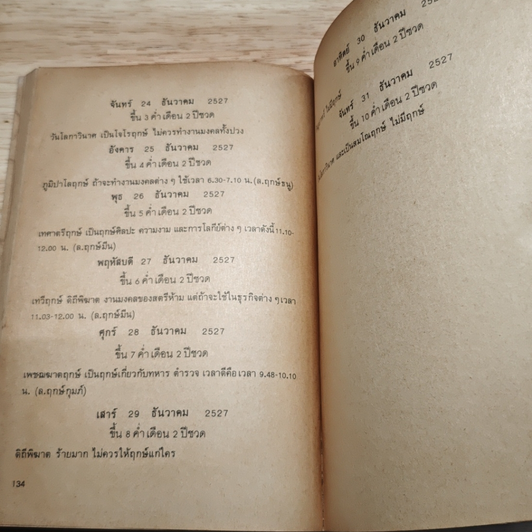 จันทร์ 24 ธันวาคม 2527
ขึ้น 3 ค่ำ เดือน 2 ปีชวด
วันโลกาวินาศ เป็นโจโรฤกษ์ ไม่ควรทำงานมงคลทั้งปวง
อังคาร 25 ธันวาคม 2527
ขึ้น 4 ค่ำ เดือน 2 ปีชวด
ภูมิปาโลฤกษ์ ถ้าจะทำงานมงคลต่าง ๆ ใช้เวลา 6.30-7.10 น.(ล.ฤกษ์ธนู)
พุธ 26 ธันวาคม 2527
ขึ้น 5 ค่ำ เดือน 2 ปีชวด
เทศาตรีฤกษ์ เป็นฤกษ์ศิลปะ ความงาม และการโลกีย์ต่าง ๆ เวลาดังนี้ 11.10-
12.00 น. (ล.ฤกษ์มีน)
พฤหัสบดี 27 ธันวาคม 2527
ขึ้น 6 ค่ำ เดือน 2 ปีชวด
เทวีฤกษ์ ดิถีพิฆาต งานมงคลของสตรีห้าม แต่ถ้าจะใช้ในธุรกิจต่าง ๆ เวลา
11.03-12.00 น. (ล.ฤกษ์มีน)
ศุกร์ 28 ธันวาคม 2527
ขึ้น 7 ค่ำ เดือน 2 ปีชวด
เพชฌฆาตฤกษ์ เป็นฤกษ์เกี่ยวกับทหาร ตำรวจ เวลาดีคือเวลา 9.48-10.10
น. (ล.ฤกษ์กุมภ์)
เสาร์ 29 ธันวาคม 2527
ขึ้น 8 ค่ำ เดือน 2 ปีชวด
ดิถีพิฆาต ร้ายมาก ไม่ควรให้ฤกษ์แก่ใคร
134
อาทิตย์ 30 ธันวาคม
ขึ้น 9 ค่ำ เดือน 2 ปีชวด
ไม่มีฤกษ์
จันทร์ 31 ธันวาคม 2527
ขึ้น 10 ค่ำ เดือน 2 ปีชวด
และเป็นสมโณฤกษ์ ไม่มีฤกษ์